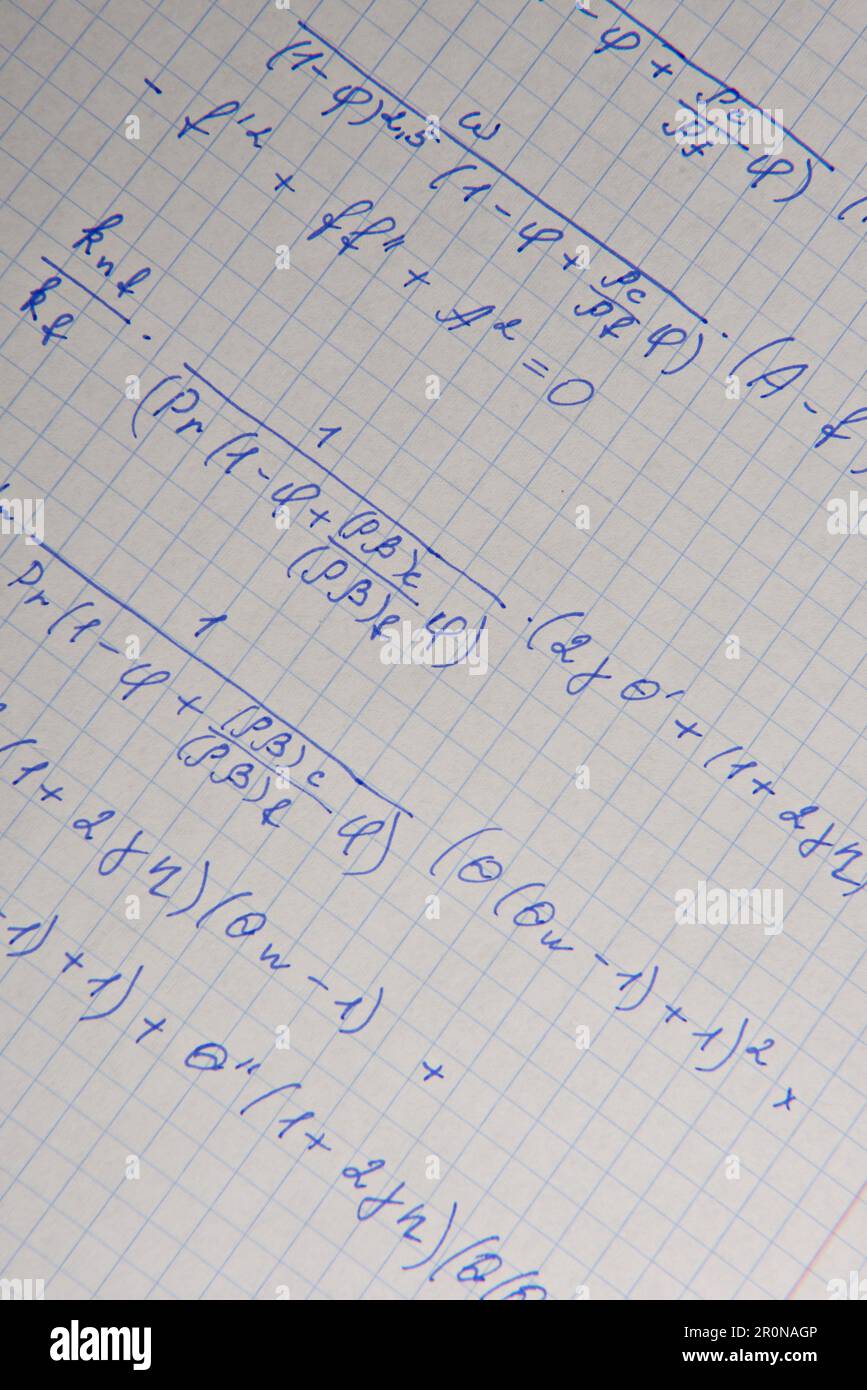 - φ + ρc/ρf φ) (
ω/((1-φ)^2,5 (1-φ + ρc/ρf φ)) · (A-f
- f'^2 + ff'' + A^2 = 0
knf/kf · 1/(Pr(1-φ + (ρβ)c/(ρβ)f φ)) · (2γθ' + (1+2γη)
1/(Pr(1-φ + (ρβ)c/(ρβ)f φ)) (θ(θw-1)+1)^2 ×
(1+2γη)(θw-1) ×
-1)+1) + θ''(1+2γη)(θ(θ
alamy
Image ID: 2R0NAGP
www.alamy.com